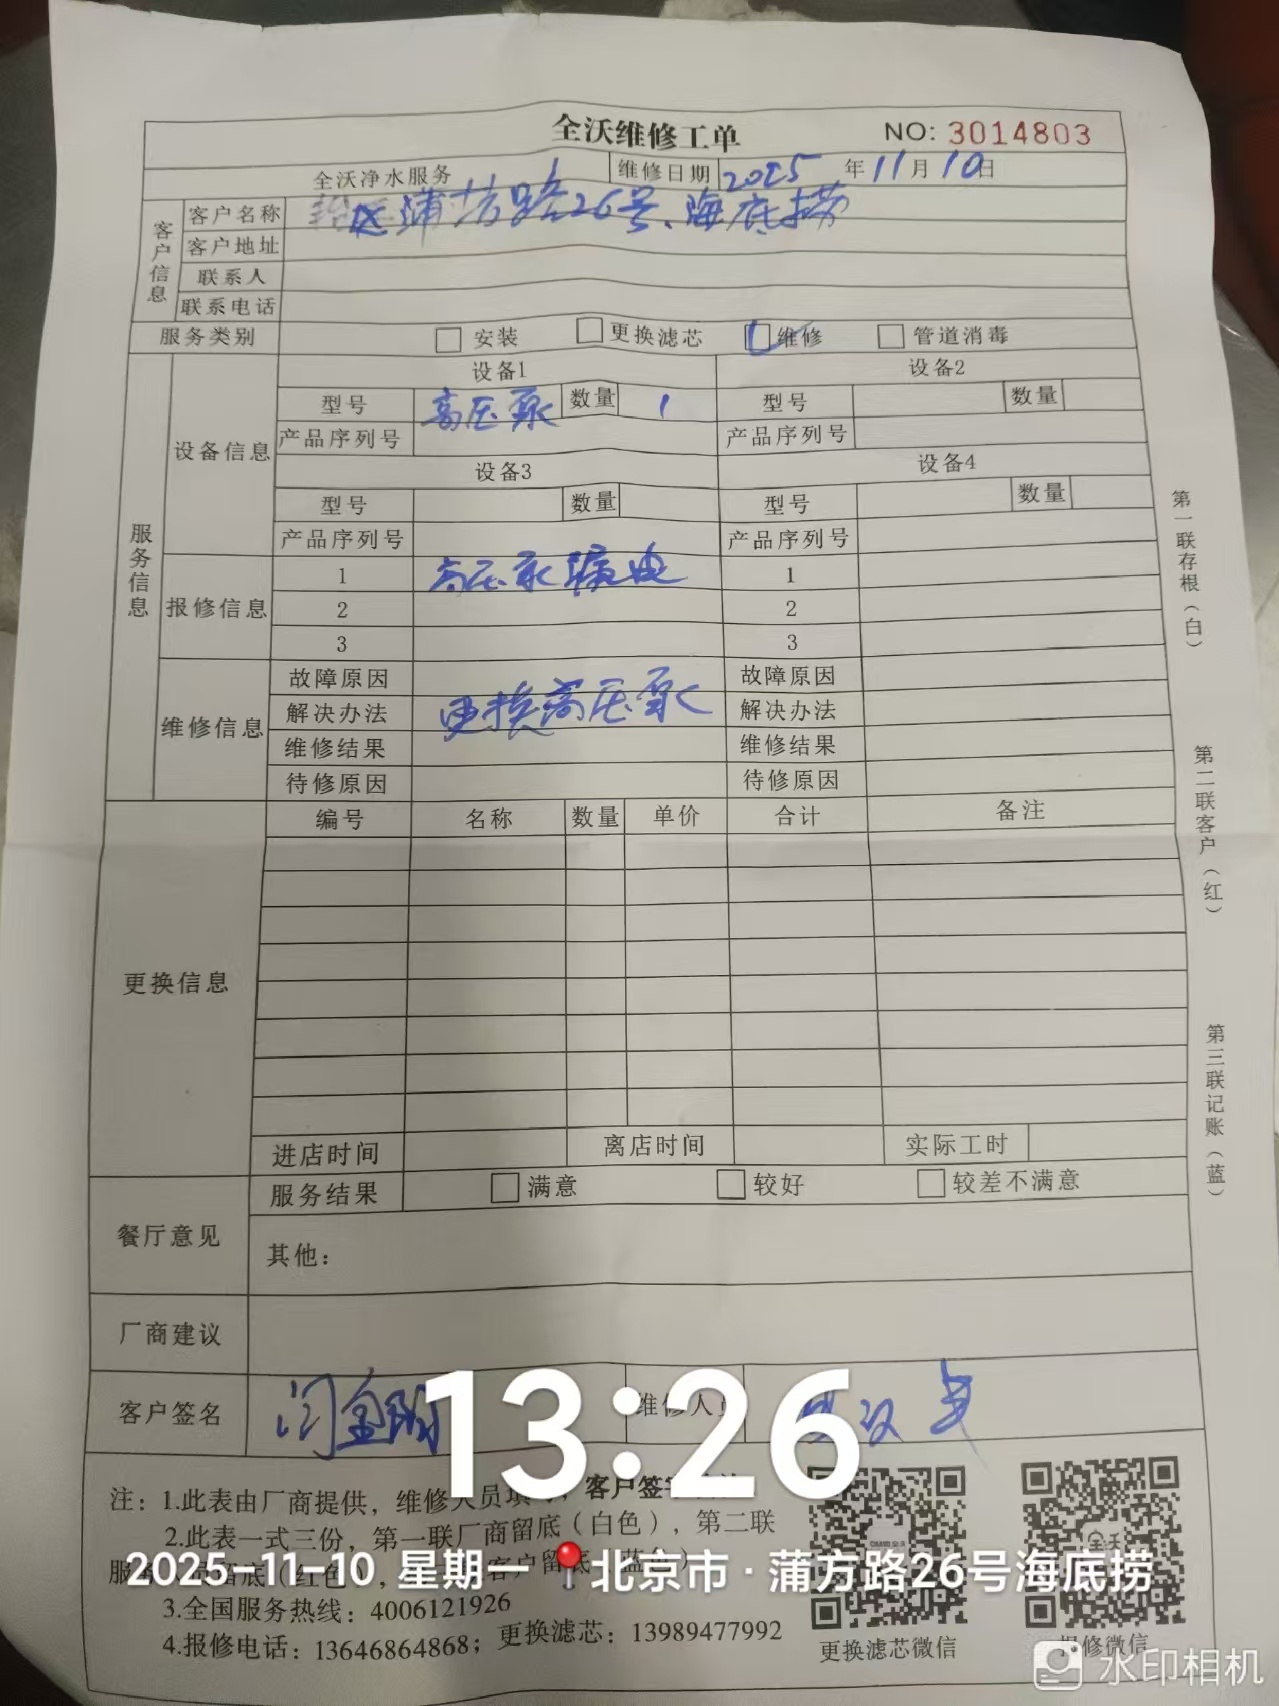 全沃维修工单
NO: 3014803
全沃净水服务 维修日期 2025 年 11 月 10 日
客户信息
客户名称 蒲方路26号、海底捞
客户地址
联系人
联系电话
服务类别 安装 更换滤芯 维修 管道消毒
服务信息
设备信息
设备1 设备2
型号 高压泵 数量 1 型号 数量
产品序列号 产品序列号
设备3 设备4
型号 数量 型号 数量
产品序列号 产品序列号
报修信息
1 高压泵漏电 1
2 2
3 3
维修信息
故障原因 故障原因
解决办法 更换高压泵 解决办法
维修结果 维修结果
待修原因 待修原因
更换信息
编号 名称 数量 单价 合计 备注
进店时间 离店时间 实际工时
餐厅意见
服务结果 满意 较好 较差不满意
其他：
厂商建议
客户签名 闫金明 维修人员
第一联存根（白）
第二联客户（红）
第三联记账（蓝）
注：1.此表由厂商提供，维修人员填 客户签字
2.此表一式三份，第一联厂商留底（白色），第二联
服 留底（红色）， 客户留底（蓝色）
3.全国服务热线：4006121926
4.报修电话：13646864868；更换滤芯：13989477992
更换滤芯微信
报修微信
13:26
2025-11-10 星期一 北京市·蒲方路26号海底捞
水印相机